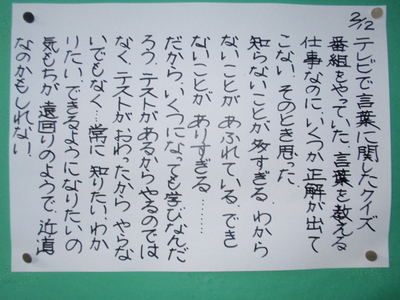 2/12
テレビで言葉に関したクイズ
番組をやっていた。言葉を教える
仕事なのに、いくつか正解が出て
こない。そのとき思った。
知らないことが多すぎる。わから
ないことがあふれている。でき
ないことがありすぎる………
だから、いくつになっても学びなんだ
ろう。テストがあるからやるのでは
なく、テストがおわったからやらな
いでもなく…常に知りたい、わか
りたい、できるようになりたいの
気もちが、遠回りのようで、近道
なのかもしれない!